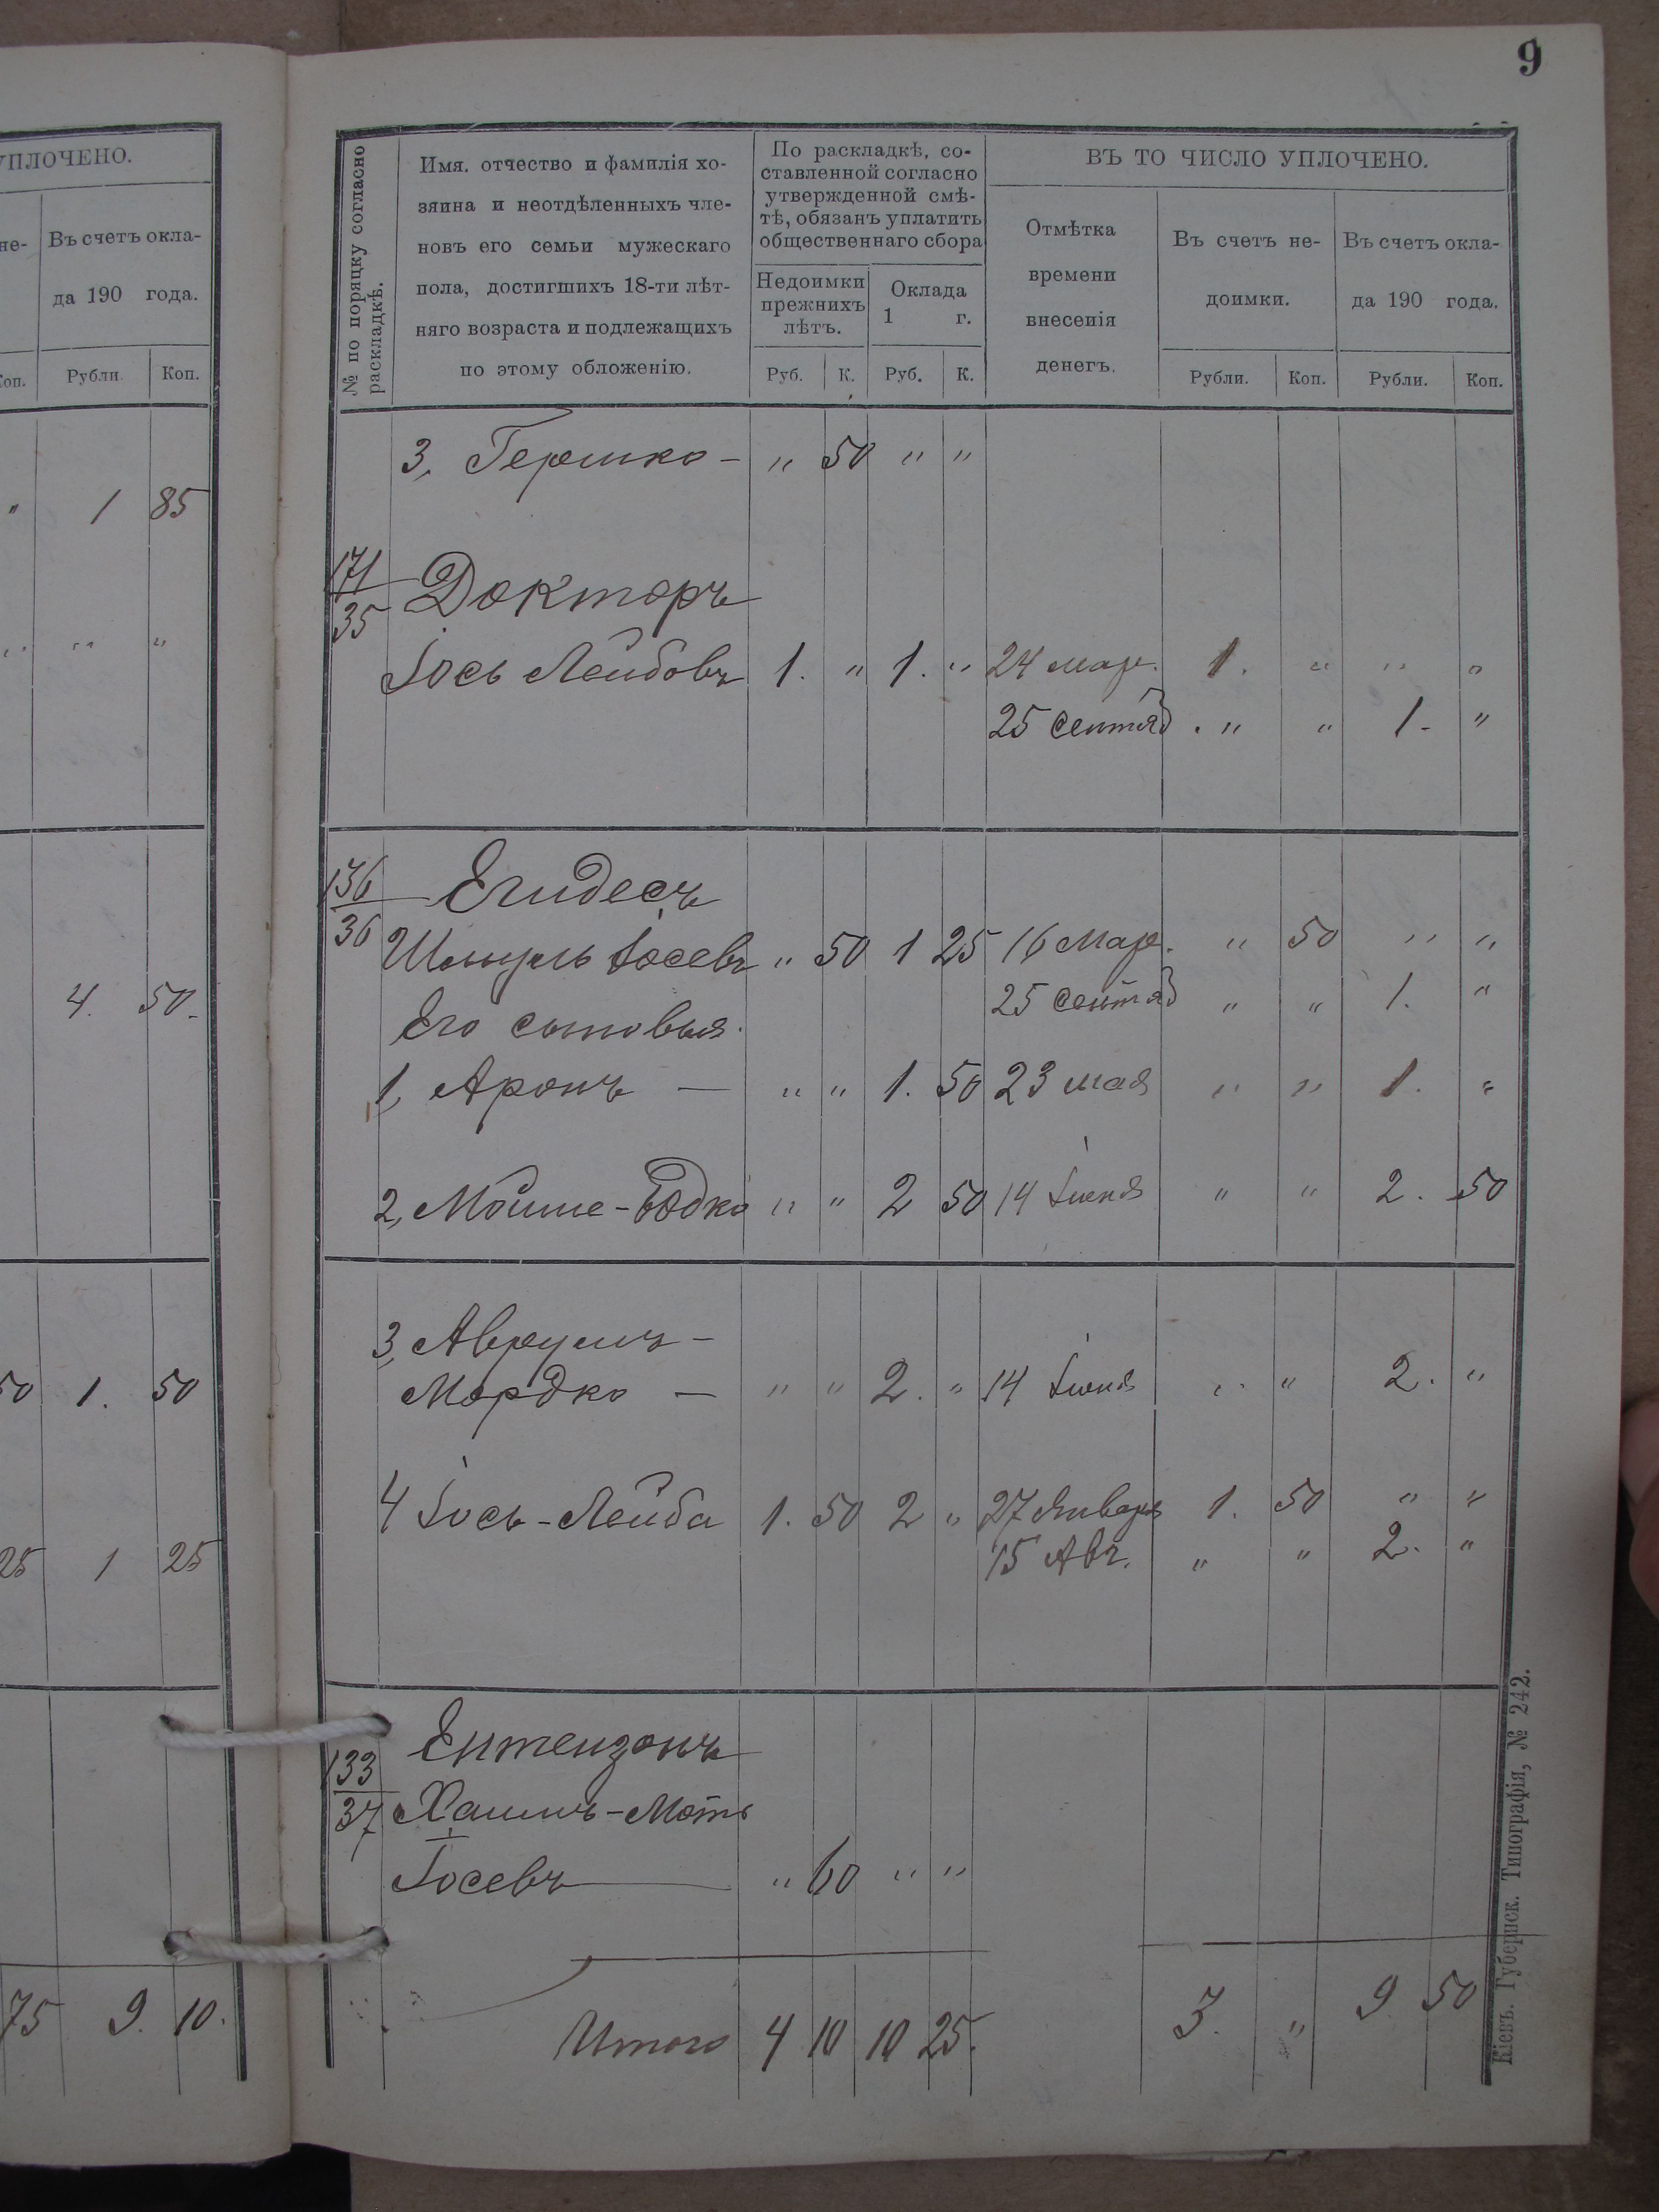 9
УПЛОЧЕНО.
не-
Въ счетъ окла-
да 190 года.
Коп. Рубли. Коп.
" 1 85
" " "
4. 50.
50 1. 50
25 1 25
75 9. 10.
№ по поряцку согласно
раскладкѣ.
Имя. отчество и фамилія хо-
зяина и неотдѣленныхъ чле-
новъ его семьи мужескаго
пола, достигшихъ 18-ти лѣт-
няго возраста и подлежащихъ
по этому обложенію.
По раскладкѣ, со-
ставленной согласно
утвержденной смѣ-
тѣ, обязанъ уплатить
общественнаго сбора
Недоимки
прежнихъ
лѣтъ.
Оклада
1 г.
Руб. К. Руб. К.
ВЪ ТО ЧИСЛО УПЛОЧЕНО.
Отмѣтка
времени
внесенія
денегъ.
Въ счетъ не-
доимки.
Въ счетъ окла-
да 190 года.
Рубли. Коп. Рубли. Коп.
3, Гершко - " 50 " "
171/35 Докторъ
Іось Лейбовъ 1. " 1. " 24 мар. 1. " " "
25 сентяб. " " 1. "
136/36 Егидесъ
Шмуль Іосевъ " 50 1 25 16 Мар. " 50 " "
Его сыновья. 25 сентяб " " 1. "
1, Аронъ — " " 1. 50 23 мая " " 1. "
2, Мойше- " " 2 50 14 Іюня " " 2. 50
3, Аврумъ -
Мордко — " " 2. " 14 Іюня " " 2. "
4 Іось-Лейба 1. 50 2 " 27 Января 1. 50 " "
15 Авг. " " 2. "
133/37 Ентензонъ
Хаимъ-Моть
Іосевъ " 60 " "
Итого 4 10 10 25. 3. " 9 50
Кіевъ. Губернск. Типографія, № 242.